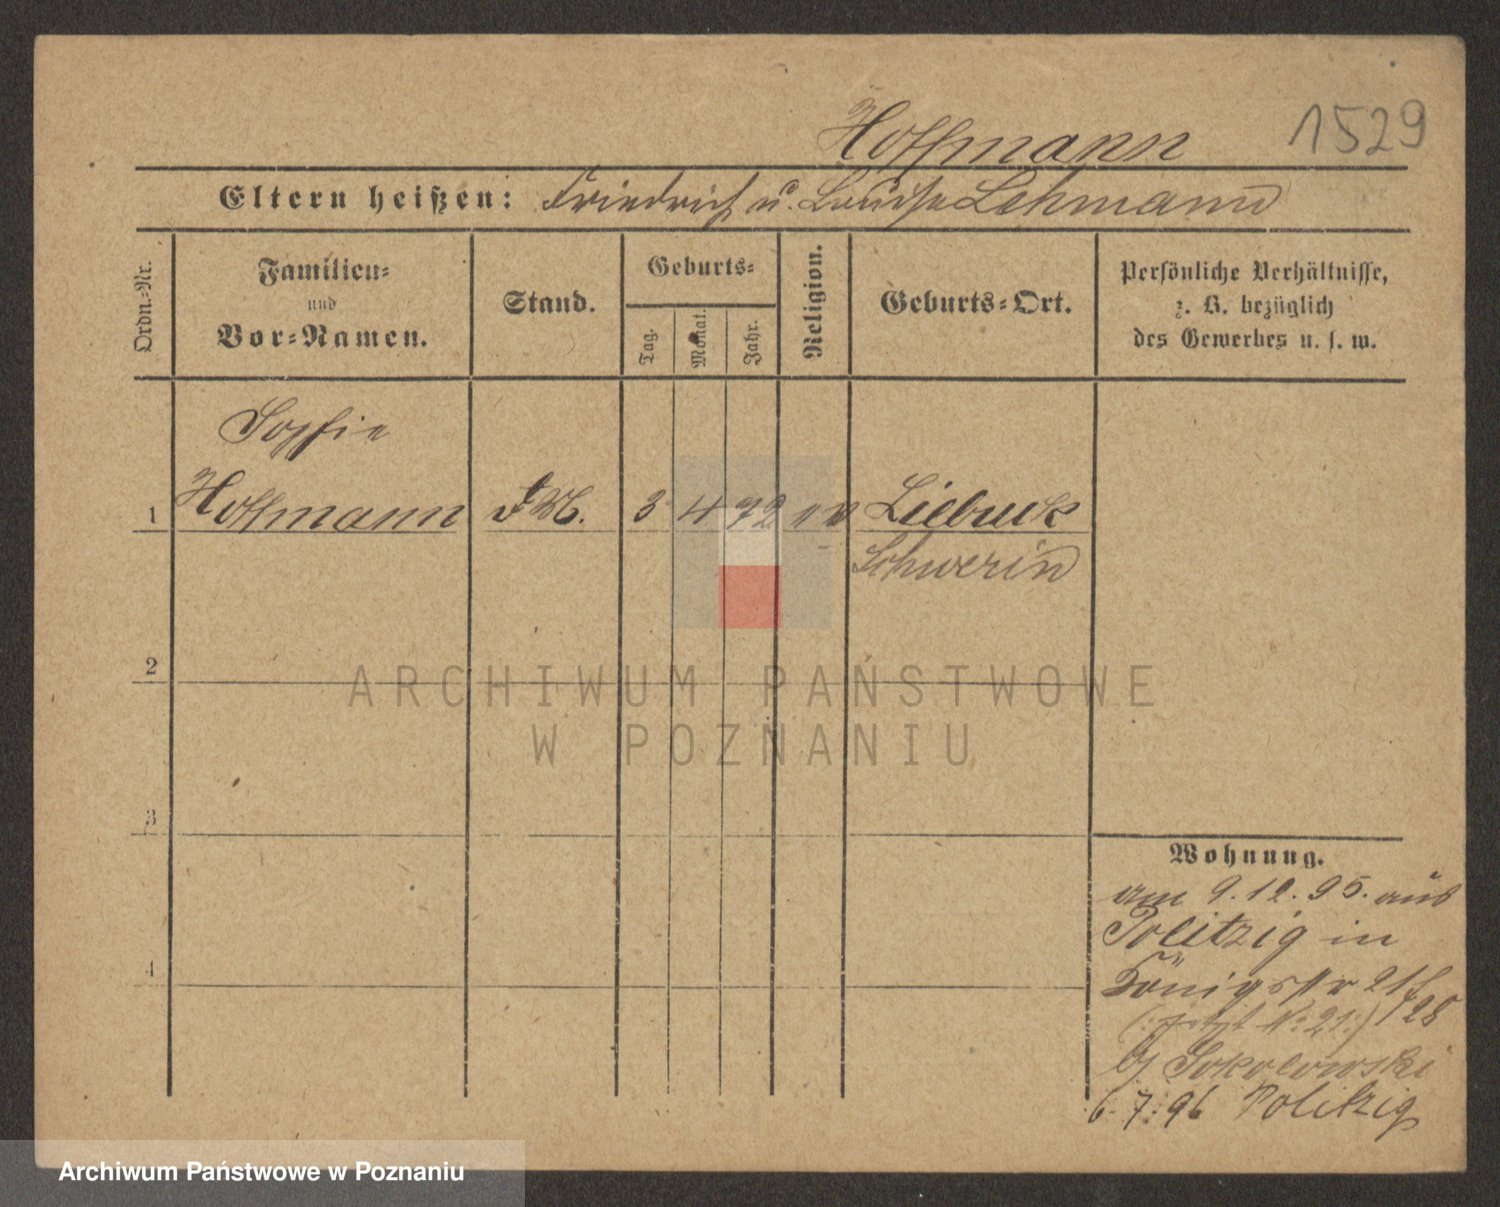 Hoffmann
1529
Eltern heißen: Friedrich u. Louise Lehmann
Ordn.-Nr.
Familien-
und
Vor-Namen.
Stand.
Geburts-
Tag.
Monat.
Jahr.
Religion.
Geburts-Ort.
Persönliche Verhältnisse,
z. B. bezüglich
des Gewerbes u. s. w.
Sophie
1 Hoffmann 3 4 72
Schwerin
2
3
4
Wohnung.
am 9.12.95. aus
Politzig in
Königstr 21/
(: jetzt No 21:) /28
b/ Sokolowski
6.7.96 Politzig
ARCHIWUM PAŃSTWOWE
W POZNANIU
Archiwum Państwowe w Poznaniu